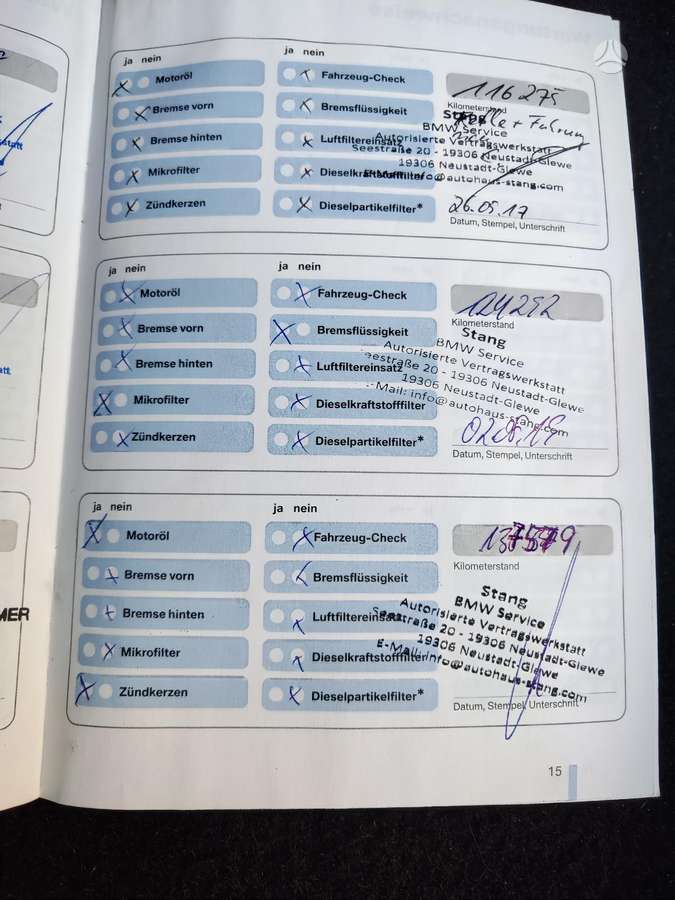 ja nein
ja nein
Motoröl
Fahrzeug-Check
116 275
Kilometerstand
Bremse vorn
Bremsflüssigkeit
Stang
BMW Service
Bremse hinten
Luftfiltereinsatz
Autorisierte Vertragswerkstatt
Seestraße 20 - 19306 Neustadt-Glewe
19306 Neustadt-Glewe
Mikrofilter
Dieselkraftstofffilter
E-Mail: info@autohaus-stang.com
Zündkerzen
Dieselpartikelfilter*
26.09.17
Datum, Stempel, Unterschrift
ja nein
ja nein
Motoröl
Fahrzeug-Check
124292
Kilometerstand
Bremse vorn
Bremsflüssigkeit
Stang
BMW Service
Bremse hinten
Luftfiltereinsatz
Autorisierte Vertragswerkstatt
Seestraße 20 - 19306 Neustadt-Glewe
19306 Neustadt-Glewe
Mikrofilter
Dieselkraftstofffilter
E-Mail: info@autohaus-stang.com
Zündkerzen
Dieselpartikelfilter*
Datum, Stempel, Unterschrift
ja nein
ja nein
Motoröl
Fahrzeug-Check
Kilometerstand
Bremse vorn
Bremsflüssigkeit
Stang
BMW Service
Bremse hinten
Luftfiltereinsatz
Autorisierte Vertragswerkstatt
Seestraße 20 - 19306 Neustadt-Glewe
19306 Neustadt-Glewe
Mikrofilter
Dieselkraftstofffilter
E-Mail: info@autohaus-stang.com
Zündkerzen
Dieselpartikelfilter*
Datum, Stempel, Unterschrift
15